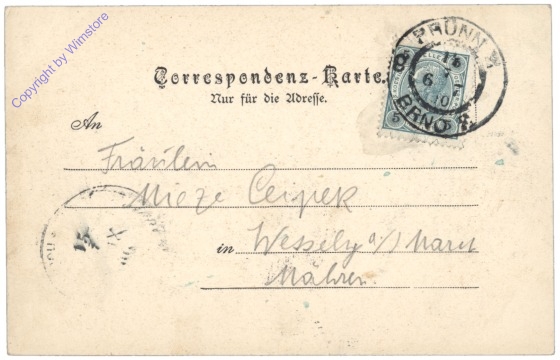 Copyright by Wimstore
BRÜNN
BRNO
5
Correspondenz-Karte.
Nur für die Adresse.
An
Fräulein
Mieze Ceipek
in Wessely a/ March
Mähren.